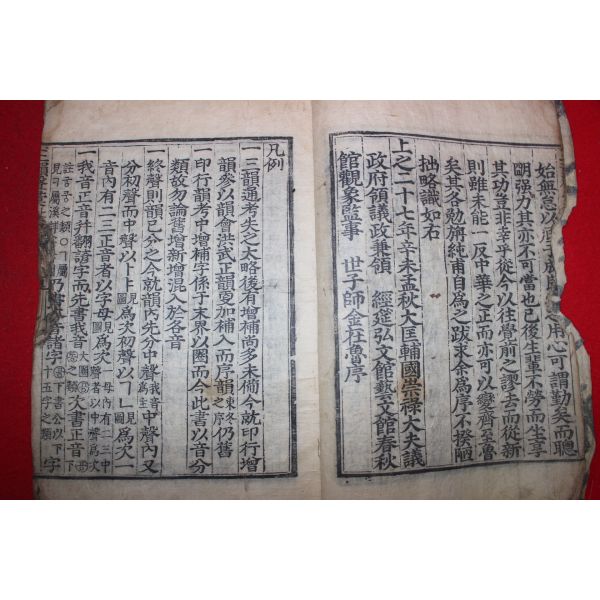 始無怠以用心可謂勤矣而聰
明强力其亦不可當也已後生輩不勞而坐享
其功豈非幸乎從今以往覺前之謬去而從新
則雖未能一反中華之正而亦可以變齊至魯
矣其各勉旃純甫自爲之跋求余爲序不揆陋
拙略識如右
上之二十七年辛未孟秋大匡輔國崇祿大夫議
政府領議政兼領 經筵弘文館藝文館春秋
館觀象監事 世子師金在魯序
凡例
一三韻通考失之太略後有增補尚多未備今就印行增
韻參以韻會洪武正韻更加補入而序韻東冬之序仍舊
一印行韻考中增補字係于末界以圈而今此書以音分
類故勿論舊增新增混入於各音
一終聲則韻已分之今就韻內先分中聲我音爲主中聲內又
分初聲而中聲以ㅏㅑ見圖爲次初聲以ㄱㄴ見圖爲次一
音內有一二三正音者以字母見圖爲次一母內有二三中聲者以中聲爲次
一我音正音幷翻諺字而先書我音大圈次書正音
乃書諸字